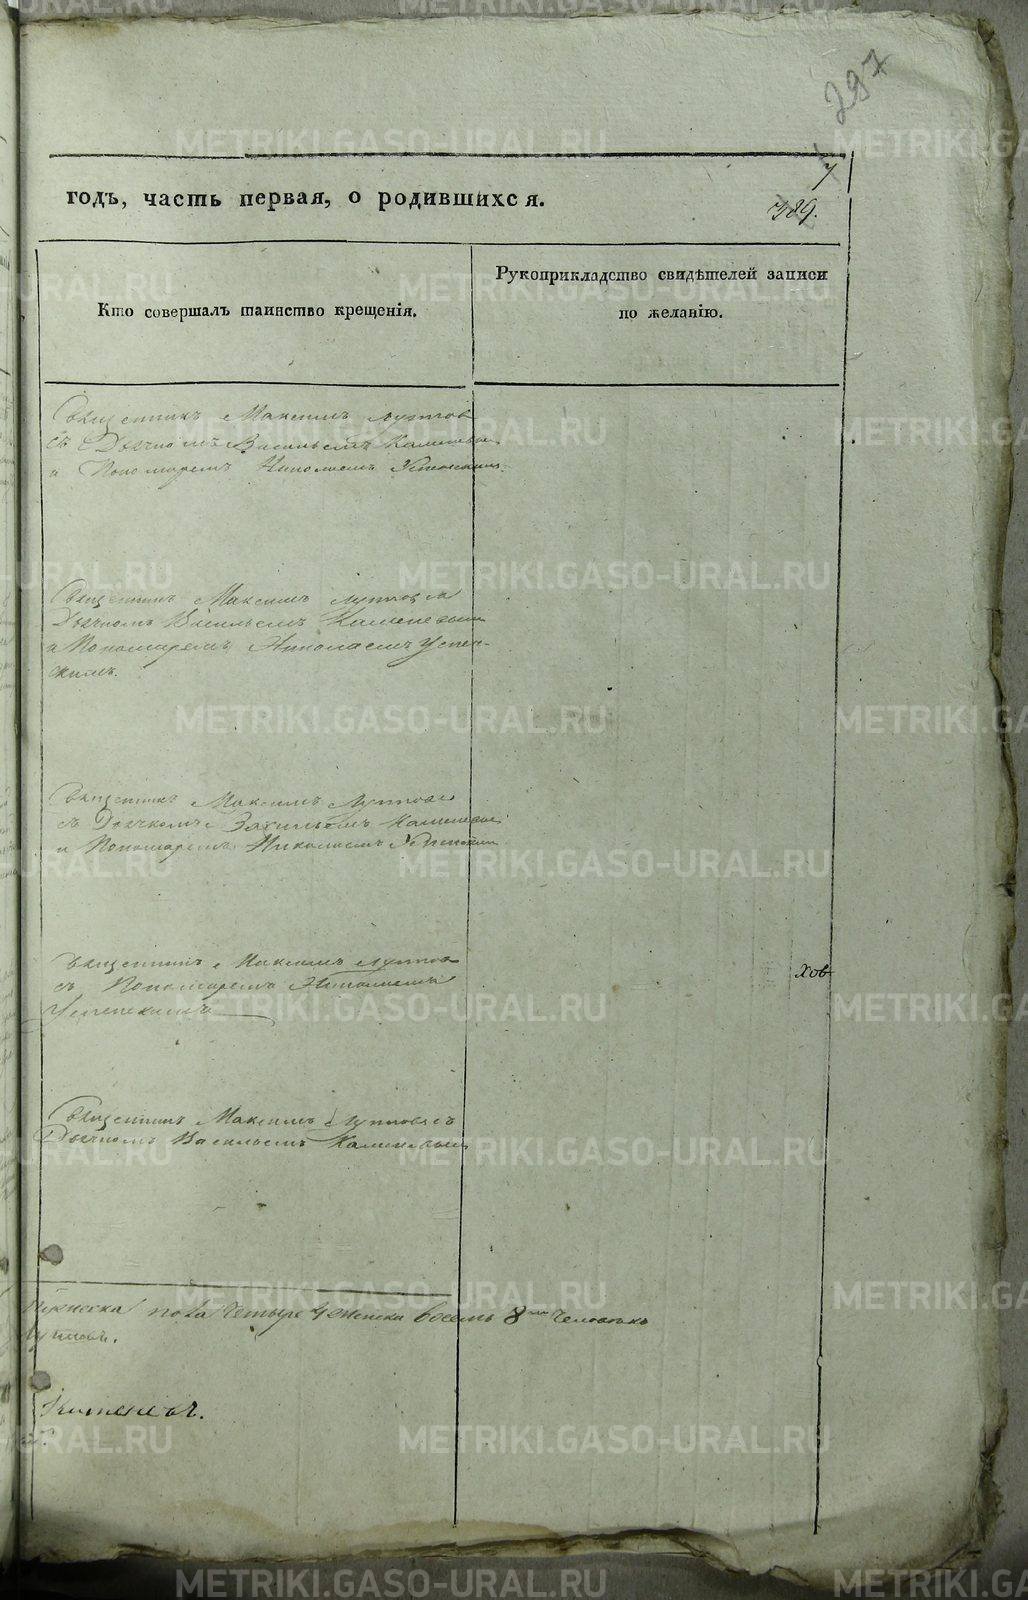 297
7
годъ, часть первая, о родившихся.
389.
Кто совершалъ таинство крещенія.
Рукоприкладство свидѣтелей записи
по желанію.
Священникъ Максимъ Луппов
съ Дьячкомъ Васильемъ Каменевы
и Пономаремъ Николаемъ Успенскимъ
Священникъ Максимъ Луппов съ
Дьячкомъ Васильемъ Каменевым
и Пономаремъ Николаемъ Успен-
скимъ.
Священникъ Максимъ Луппов
съ Дьячкомъ Васильемъ Каменевы
и Пономаремъ Николаемъ Успенским
Священникъ Максимъ Луппов
съ Пономаремъ Николаемъ
Успенскимъ
хов
Священникъ Максимъ Луппов съ
Дьячкомъ Васильемъ Каменевым
пола четыре 4 женска восемь 8 человекъ
Каменевъ.
METRIKI.GASO-URAL.RU